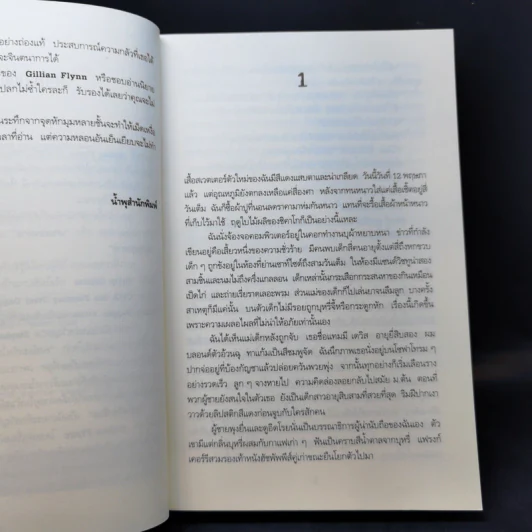 อย่างถ่องแท้ ประสบการณ์ความกลัวที่เธอได้
จะจินตนาการได้
ของ Gillian Flynn หรือชอบอ่านนิยาย
ปลกไม่ซ้ำใครละก็ รับรองได้เลยว่าคุณจะไม่
นระทึกจากจุดหักมุมหลายชั้นจะทำให้
ลาที่อ่าน แต่ความหลอนอันเย็นเยียบจะไม่
น้ำพุสำนักพิมพ์
1
เสื้อสเวตเตอร์ตัวใหม่ของฉันมีสีแดงแสบตาและน่าเกลียด วันนี้วันที่ 12 พฤษภา
แล้ว แต่อุณหภูมิยังตกลงเหลือแค่สี่องศา หลังจากทนหนาวใส่แค่เสื้อเชิ้ตอยู่สี่
วันเต็ม ฉันก็ซื้อผ้าปูที่นอนลดราคามาห่มกันหนาว แทนที่จะรื้อเสื้อผ้าหน้าหนาว
ที่เก็บไว้มาใช้ ฤดูใบไม้ผลิของชิคาโกก็เป็นอย่างนี้แหละ
ฉันนั่งจ้องจอคอมพิวเตอร์อยู่ในคอกทำงานบุผ้าหยาบหนา ข่าวที่กำลัง
เขียนอยู่คือเสี้ยวหนึ่งของความชั่วร้าย มีคนพบเด็กสี่คนอายุตั้งแต่
เด็ก ๆ ถูกขังอยู่ในห้องที่ย่านเซาท์ไซด์ถึงสามวันเต็ม ในห้องมีแซนด์วิชทูน่าสอง
สามชิ้นและนมไม่ถึงครึ่งแกลลอน เด็กเหล่านั้นกระเสือกกระสนหาของกินเหมือน
เป็ดไก่ และถ่ายเรี่ยราดเลอะพรม ส่วนแม่ของเด็กก็ไปเล่นยาจนลืมลูก บางครั้ง
สาเหตุก็มีแค่นั้น บนตัวเด็กไม่มีรอยถูกบุหรี่จี้หรือกระดูกหัก เรื่องนี้เกิดขึ้น
เพราะความเผลอไผลที่ไม่น่าให้อภัยเท่านั้นเอง
ฉันได้เห็นแม่เด็กหลังถูกจับ เธอชื่อแทมมี่ เดวิส อายุยี่สิบสอง ผม
บลอนด์ตัวอ้วนฉุ ทาแก้มเป็นสีชมพูจัด ฉันนึกภาพเธอนั่งอยู่บนโซฟาโทรม ๆ
ปากจ่ออยู่ที่บ้องกัญชาแล้วปล่อยควันพวยพุ่ง จากนั้นทุกอย่างก็เริ่มเลือนราง
อย่างรวดเร็ว ลูก ๆ จางหายไป ความคิดล่องลอยกลับไปสมัย ม.ต้น ตอนที่
พวกผู้ชายยังสนใจในตัวเธอ ยังเป็นเด็กสาวอายุสิบสามที่สวยที่สุด ริมฝีปากเงา
วาวด้วยลิปสติกสีแดงก่อนจูบกับใครสักคน
ผู้ชายพุงยื่นและดูอิดโรยนั่นเป็นบรรณาธิการผู้น่านับถือของฉันเอง ตัว
เขามีแต่กลิ่นบุหรี่ผสมกับกาแฟเก่า ๆ ฟันเป็นคราบสีน้ำตาลจากบุหรี่ แฟรงก์
เคอร์รีสวมรองเท้าหนังฮัชพัพพีส์คู่เก่าขณะยืนโยกตัวไปมา